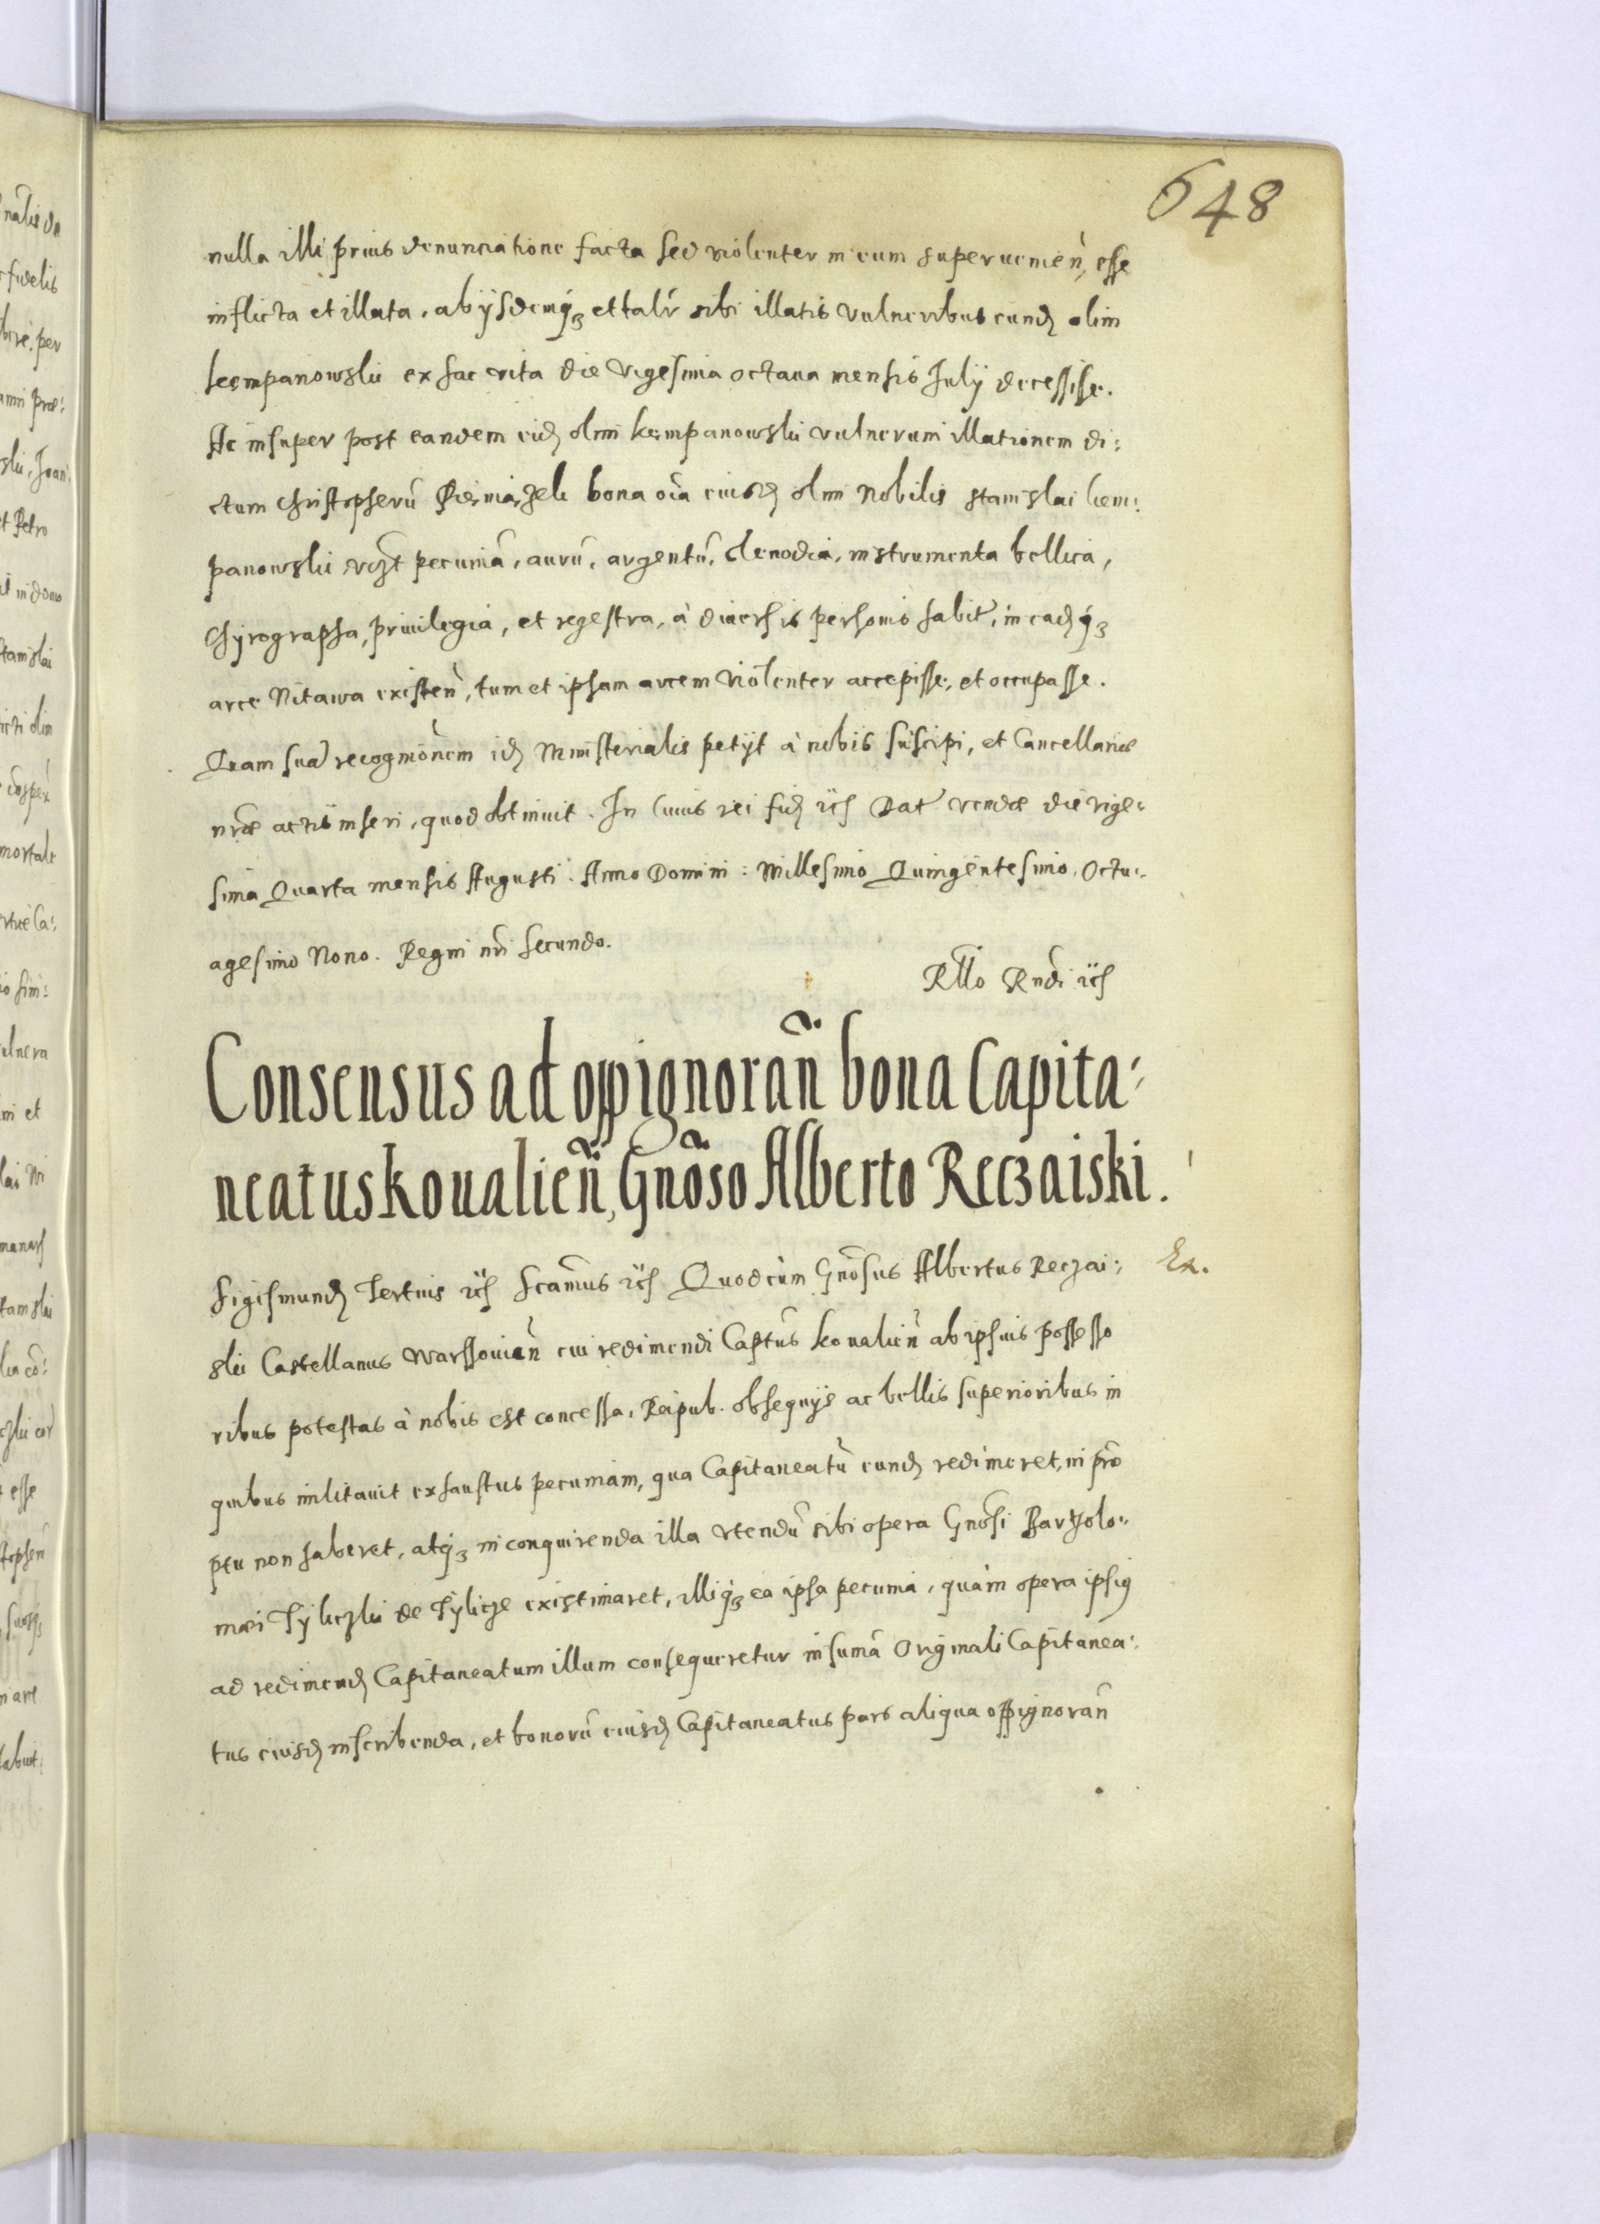 648
nulla illi prius denunciatione facta sed violenter in eum supervenien̄, esse
inflicta et illata, ab ijsdemq́ꝫ et talr̄ sibi illatis vulneribus eund olim
kempanowski ex hac vita die vigesima octava mensis July decessisse.
Ac insuper post eandem eid olim kempanowski vulnerum illationem di:
ctum Christopherū bona oīa eiusd olim Nobilis Stanislai kem:
panowski vczt pecuniā, aurū, argentū, clenodia, instrumenta bellica,
Chyrographa, privilegia, et regestra, à diversis personis habit, in eadq́ꝫ
arce Nitawa existen̄, tum et ipsam arcem violenter accepisse, et occupasse.
Quam suā recogniōnem id Ministerialis petijt à nobis suscipi, et Cancellariæ
nrǣ actis inseri, quod obtinuit. In Cuius rei fid etc Dat Vendæ die vige:
sima Quarta mensis Augusti. Anno Domini: Millesimo Quingentesimo, Octu:
agesimo Nono. Regni nrī secundo.
Rllo Rndi etc
Consensus ad oppignoran̄ bona Capita:
neatus kovalien̄, Gnōso Alberto Reczaiski.
Ex.
Sigismund Tertius etc Scāmus etc Quod cùm Gnōsus Albertus Reczai:
ski Castellanus Warssovien̄ cui redimendi Captūs kovalien̄ ab ipsius possesso
ribus potestas à nobis est concessa, Reipub. obsequijs ac bellis superioribus in
quibus militavit exhaustus pecuniam, qua Capitaneatū eund redimeret, in prō
ptu non haberet, atq́ꝫ in conquirenda illa vtendū sibi opera Gnōsi Bartholo:
mæi Tÿliczki de Tÿlicze existimaret, illiq́ꝫ ea ipsa pecunia, quàm opera ipsiꝰ
ad redimend Capitaneatum illum consequeretur in sumā Originali Capitanea:
tus eiusd inscribenda, et bonorū eiusd Capitaneatus pars aliqua oppignoran̄